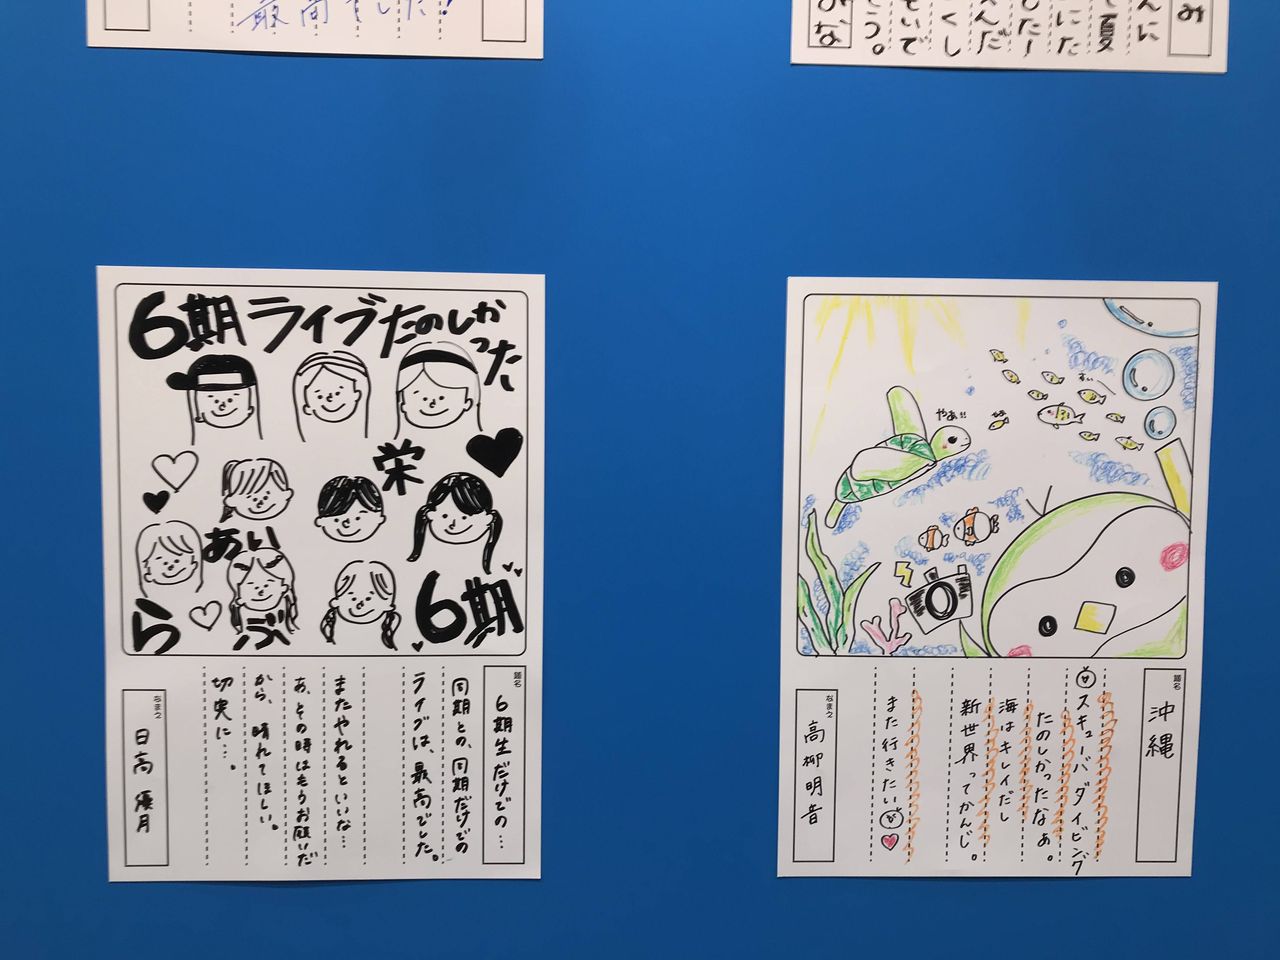 最高でした!
6期ライブたのしかった
栄
あい
らぶ
6期
題名
6期生だけでの…
同期との、同期だけでの
ライブは、最高でした。
またやれるといいな…
あ、その時はもうお願いだ
から、晴れてほしい。
切実に…。
なまえ
日高 優月
やぁ!!
題名
沖縄
スキューバダイビング
たのしかったなぁ。
海はキレイだし
新世界ってかんじ。
また行きたい
なまえ
高柳明音